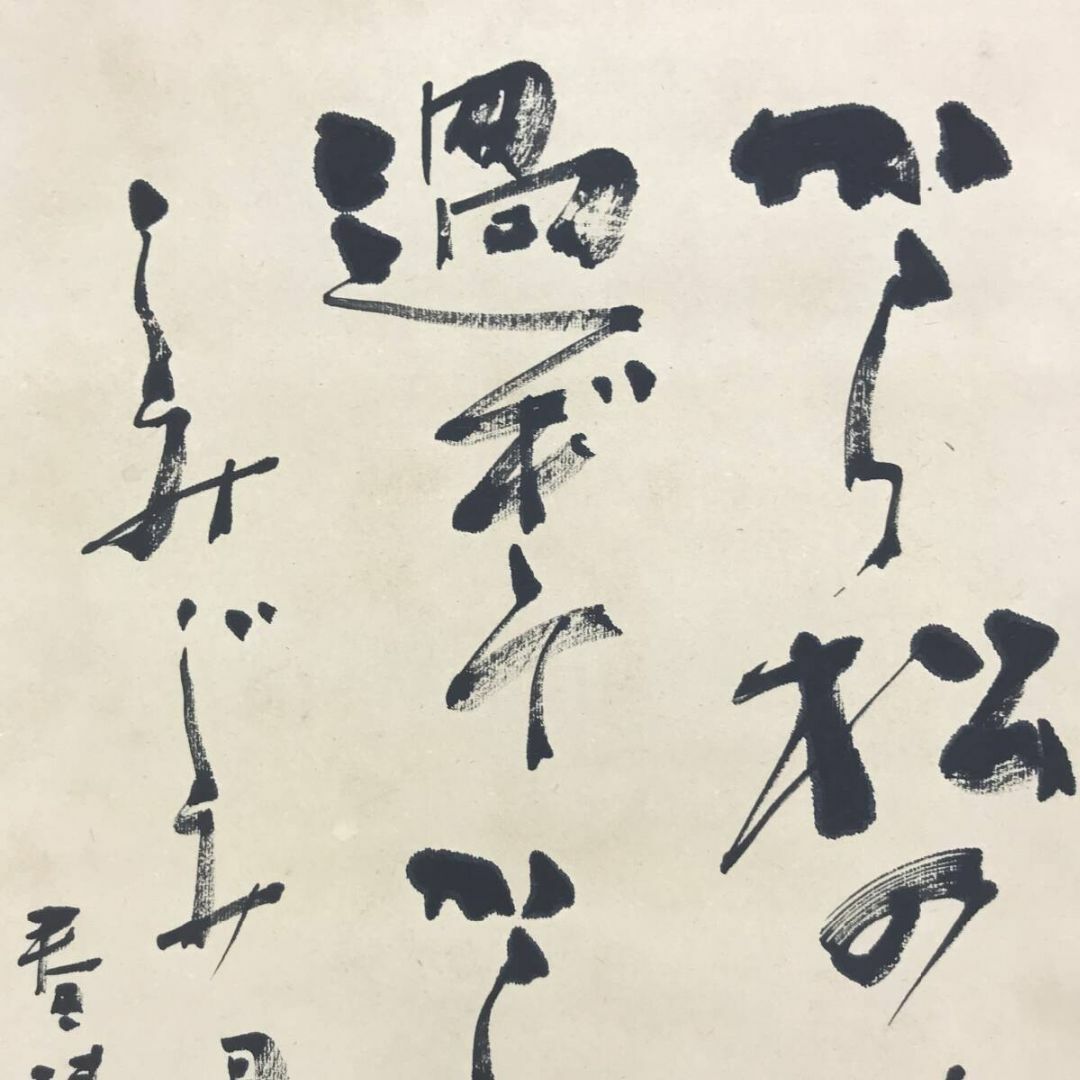 から松の
過ぎてか
しみじみ
春